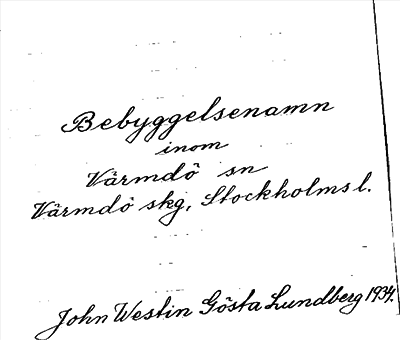 Bebyggelsenamn
inom
Värmdö sn
Värmdö skg, Stockholms l.
John Westin Gösta Lundberg 1934.